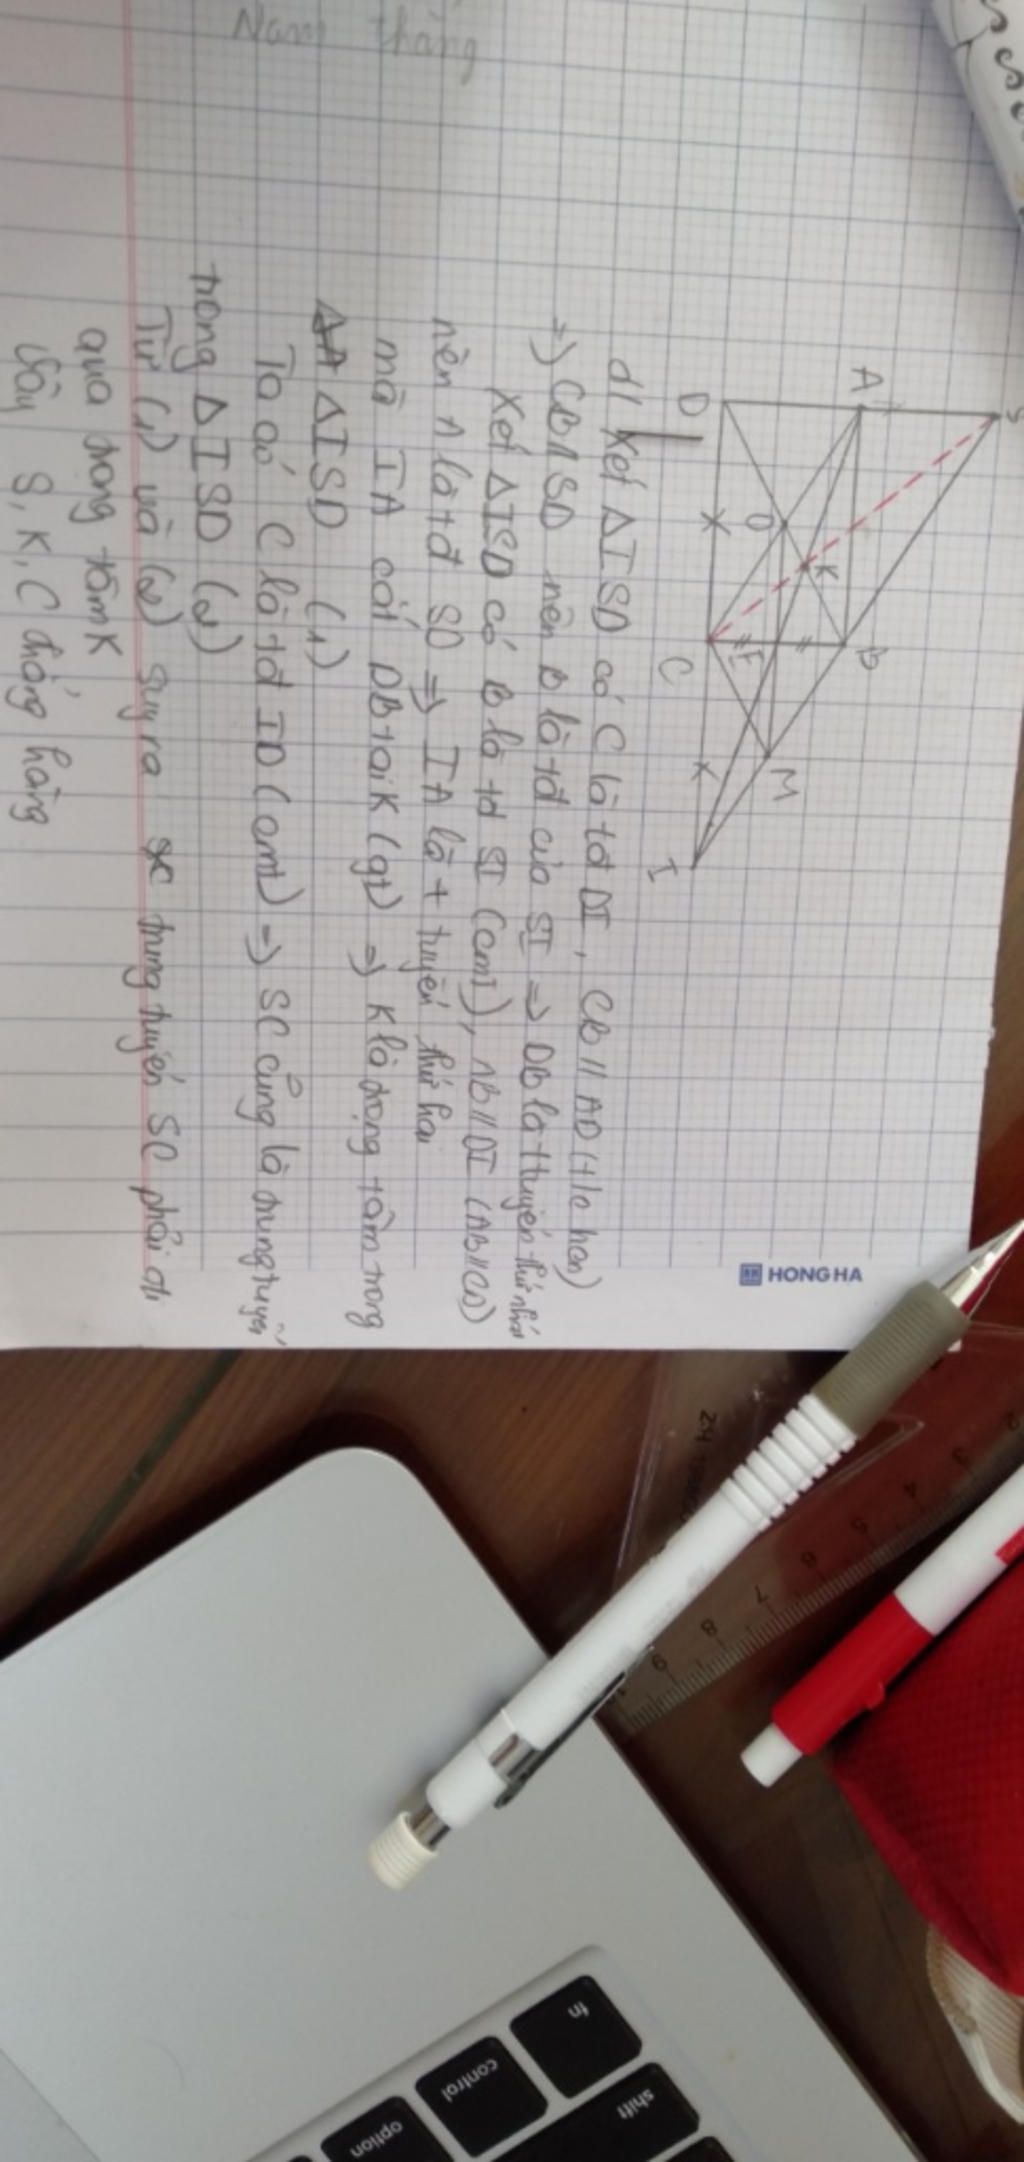 Năm tháng
S
A
B
D
O
K
E
C
M
I
d/ Xét ΔISD có C là tđ DI, CB // AD (t/c hcn)
=) CB // SD nên B là tđ của SI => DB là t tuyến thứ nhất
Xét ΔISD có B là tđ SI (cmt), AB // DI (AB // CD)
nên A là tđ SD => IA là t tuyến thứ hai
mà IA cắt DB tại K (gt) => K là trọng tâm trong
ΔISD (1)
Ta có C là tđ ID (cmt) => SC cũng là trung tuyến
trong ΔISD (2)
Từ (1) và (2) suy ra trung tuyến SC phải đi
qua trọng tâm K
Vậy S, K, C thẳng hàng
HONG HA
2
3
4
5
6
7
8
9
fn
control
option
shift